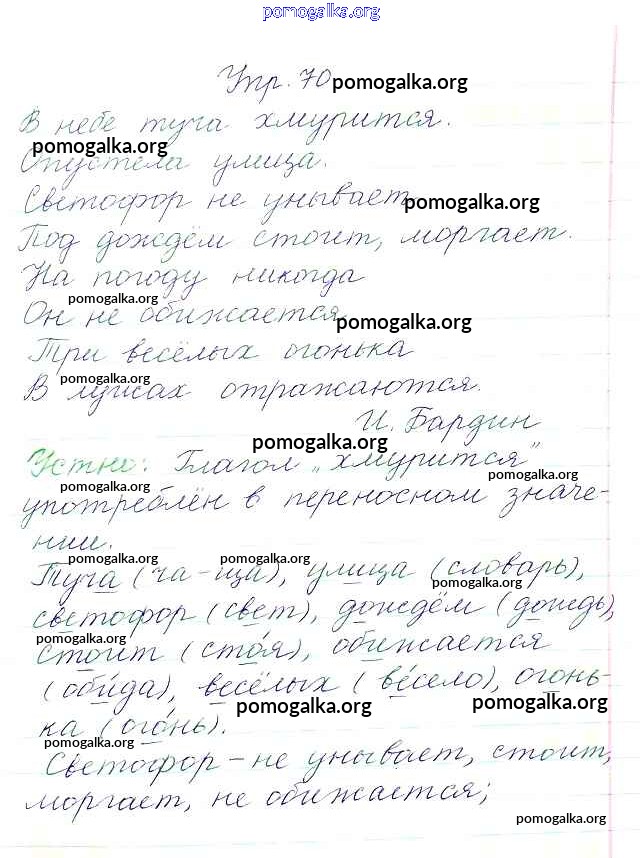 pomogalka.org
Упр. 70 pomogalka.org
В небе туча хмурится.
pomogalka.org
Опустела улица.
Светофор не унывает pomogalka.org
Под дождём стоит, моргает.
На погоду никогда
pomogalka.org
Он не обижается. pomogalka.org
Три весёлых огонька
pomogalka.org
В лужах отражаются.
И. Бардин
pomogalka.org
Устно: Глагол „хмурится"
pomogalka.org pomogalka.org
употреблён в переносном значе-
нии.
pomogalka.org pomogalka.org
Туча (ча-ща), улица (словарь),
pomogalka.org
светофор (свет), дождём (дождь),
pomogalka.org
стоит (сто́я), обижается
(оби́да), весёлых (ве́село), огонь-
pomogalka.org pomogalka.org
ка (ого́нь).
pomogalka.org
Светофор – не унывает, стоит,
моргает, не обижается;
pomogalka.org